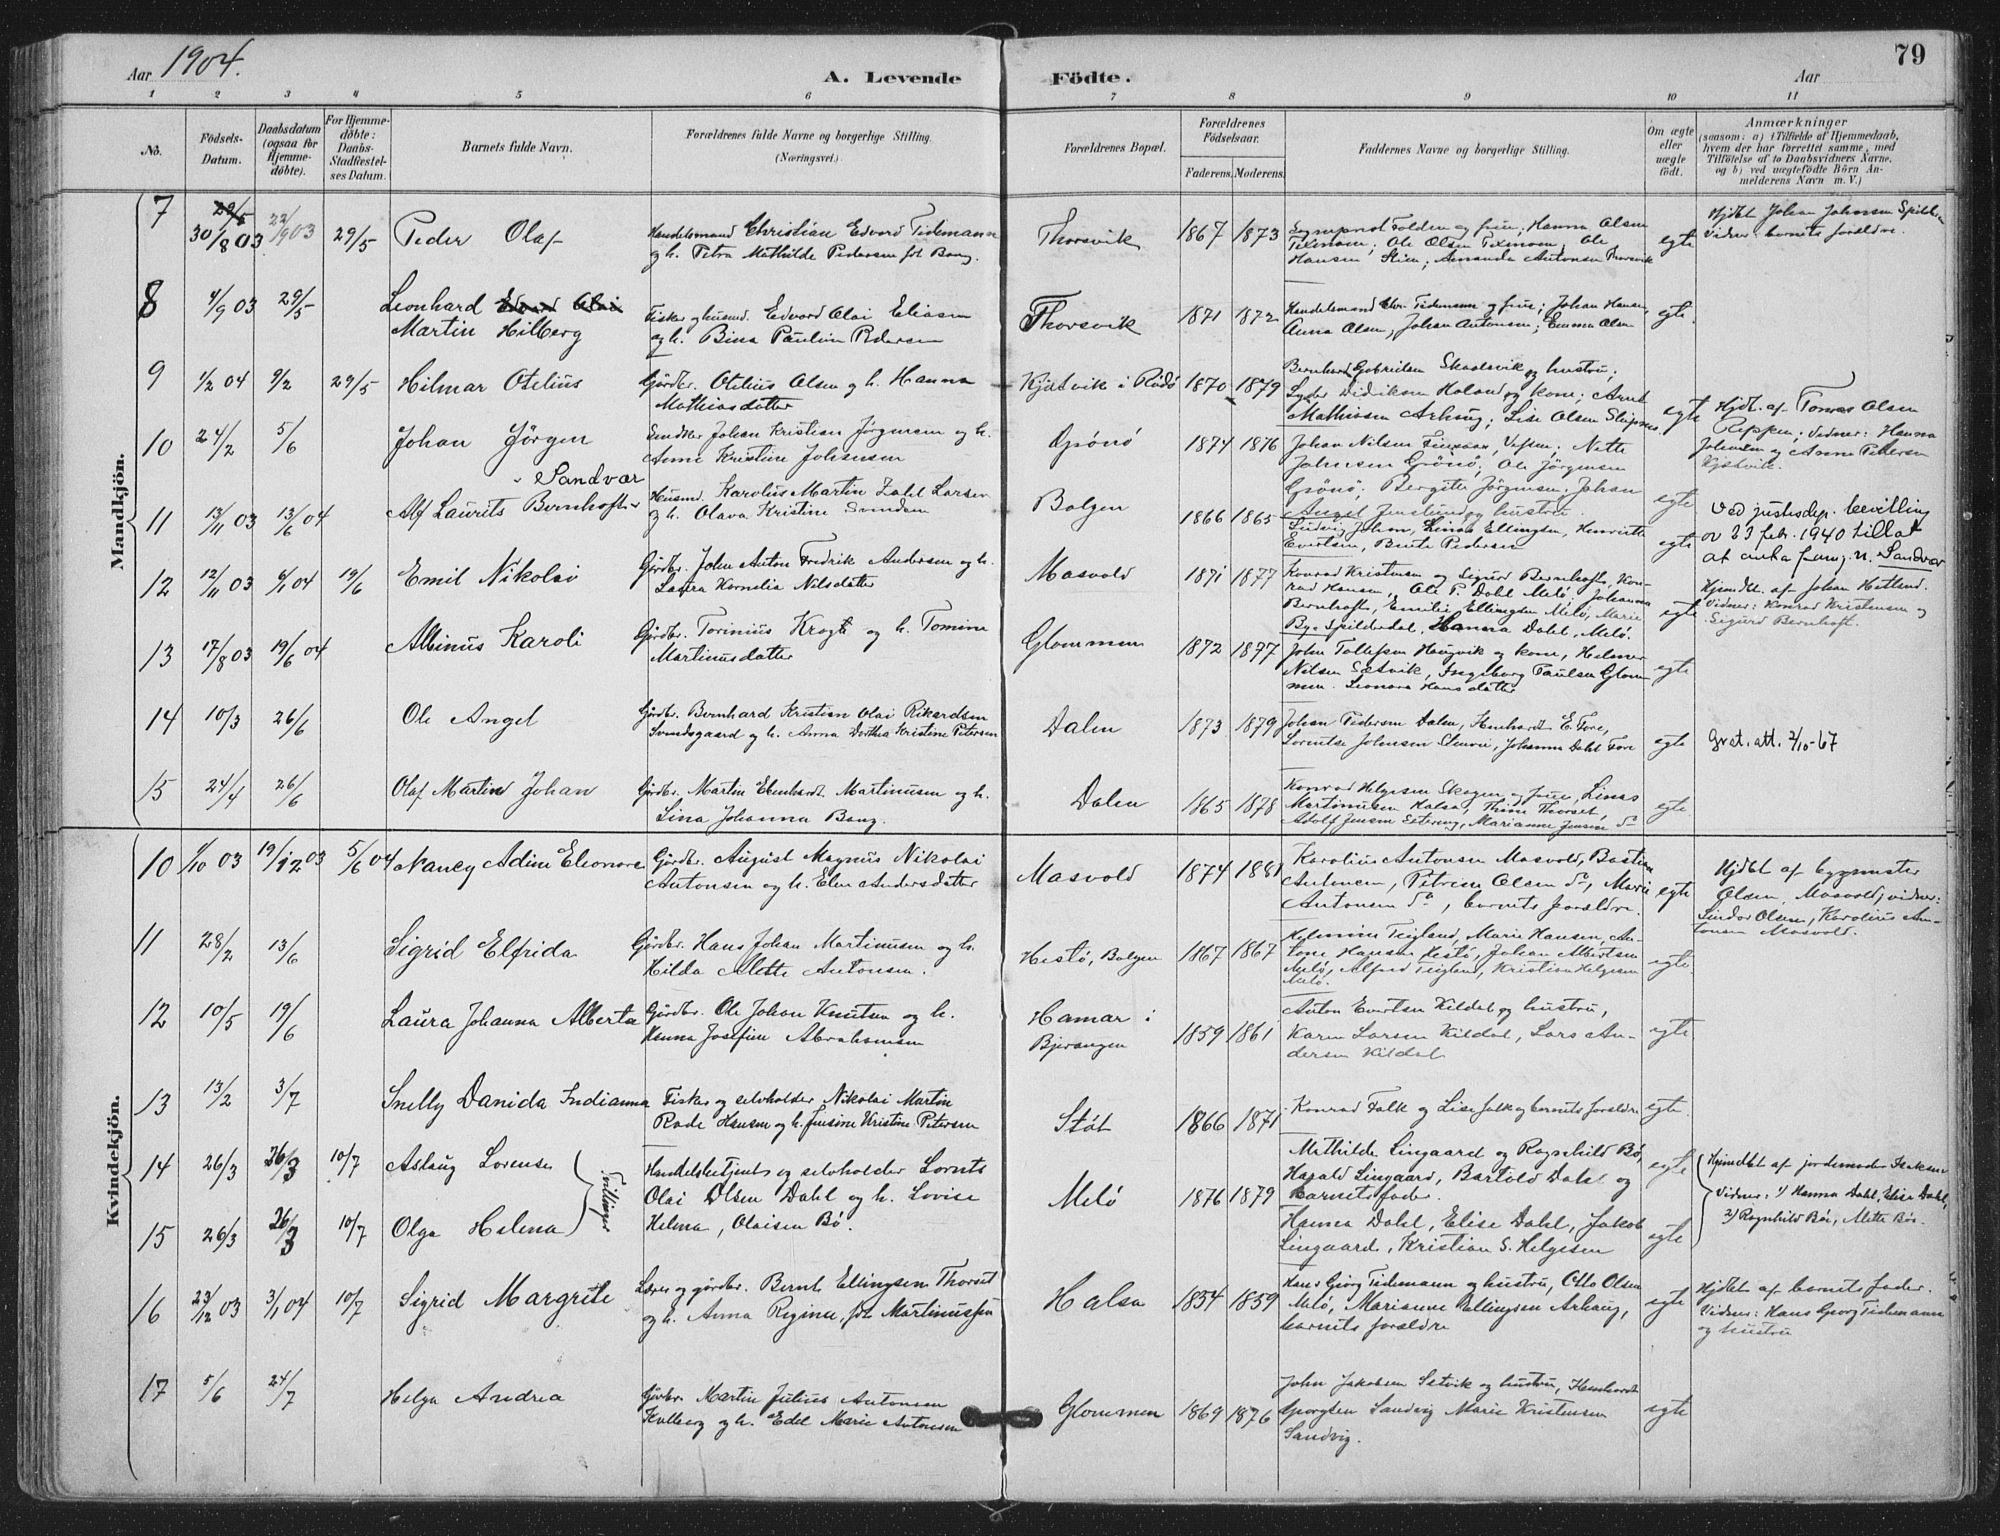 Aar 1904.
A. Levende Födte.
Aar
79
1 2 3 4 5 6 7 8 9 10 11
No.
Födsels-Datum.
Daabsdatum (ogsaa for Hjemmedöbte).
For Hjemmedöbte: Daabs-Stadfæstelses Datum.
Barnets fulde Navn.
Forældrenes fulde Navne og borgerlige Stilling. (Næringsvei.)
Forældrenes Bopæl.
Forældrenes Födselsaar.
Faderens. Moderens.
Faddernes Navne og borgerlige Stilling.
Om ægte eller uægte födt.
Anmærkninger
(saasom: a) i Tilfælde af Hjemmedaab, hvem der har forrettet samme, med Tilföielse af to Daabsvidners Navne, og b) ved uægtefödte Börn Anmelderens Navn m. V.)
Mandkjön.
7 30/8 03 22/9 03 29/5 Peder Olaf
Handelsmand Christian Edvard Tidemann
og h. Petra Mathilde Pedersen föt Bang.
Thorsvik 1867 1873
Folden og frue; Hanna Olsen
Texmoen; Ole Olsen Texmoen; Ole
Hansen Stien; Amanda Antonsen Thorsvik
egte
Hjdbt Johan Johnsen
Vidner: barnets forældre.
8 4/9 03 29/5 Leonhard Edvard Olai
Martin Hilberg
Fisker og husmd. Edvard Olai Eliasen
og h. Bina Paulin Pedersen
Thorsvik 1871 1872
Handelsmand Chr. Tidemann og frue; Johan Hansen,
Anna Olsen, Johan Antonsen; Emma Olsen
egte.
9 1/2 04 9/2 29/5 Hilmar Otelius
Gårdbr. Otelius Olsen og h. Hanna
Mathiasdatter
Kjætvik i Rödö 1870 1879
Bernhard Gabrielsen Skaalsvik og hustru;
Lyder Didriksen Haland og kone; Arnt
Mathiesen Arhaug; Lise Olsen
egte
Hjdt. af Tomas Olsen
Reppen; Vidner: Hanna
Johansen og Anne Pettersen
Kjætvik.
10 24/2 5/6 Johan Jörgen
Johan Kristian Jörgensen og h.
Anne Kristine Johansen
Grönö 1874 1876
Johan Nilsen Finsaas, Vefsen; Nette
Johnsen Grönö; Ole Jörgensen
Grönö; Bergite Jörgensen; Johan
Angel og hustru.
egte
11 13/11 03 13/6 04 Alf Laurits Bernhoft - Sandvær
Husmd. Karolus Martin Zahl Larsen
og h. Olava Kristine Svendsen
Bolgen 1866 1865
Ludvig Johan, Linas Ellingsen, Henriette
Evertsen, Bente Pedersen
egte
Ved justisdep. bevilling
av 23 febr. 1940 tillat
at anta fam.n. Sandvær
12 12/11 03 6/1 04 19/6 Emil Nikolai
Gårdbr. John Anton Fredrik Andersen og h.
Laura Kornelia Nilsdatter
Masvold 1871 1877
Konrad Kristensen og Sigurd Bernhoft, Kon-
rad Hansen, Ole P. Dahl Melö, Johanna
Bernhoft, Emilie Ellingsen Melö, Marie
By. Spildedal, Hanna Dahl, Melö.
egte
Hjemdbt. af Johan Hetlund.
Vidner: Konrad Kristensen og
Sigurd Bernhoft.
13 17/8 03 19/6 04 Albinus Karoli
Gårdbr. Torinius Krogh og h. Tomine
Martinusdatter
Glommen 1872 1877
John Tollefsen Haugvik og kone, Helmer
Nilsen Sætvik, Ingeborg Paulsen Glom-
men. Leonora Hansdatter
egte
14 10/3 26/6 Ole Angel
Gårdbr. Bernhard Kristian Olai Rikardsen
Svendsgaard og h. Anna Dorthea Kristine Petersen
Dalen 1873 1879
Johan Pedersen Dalen, Henhardt E. Fore,
Lorentse Johnsen, Johanna Dahl Fore
egte
Gv. et. att. 2/10-67
15 24/4 26/6 Olaf Martin Johan
Gårdbr. Martin Ebenhardt Martinusen og h.
Lina Johanna Bang.
Dalen 1865 1878
Konrad Helgesen Skogen og frue, Linas
Martinusen Halsa, Thine Thorset,
Adolf Jensen, Marianne Jensen do
egte
Kvindekjön.
10 1/10 03 19/12 03 5/6 04 Nancy Adine Eleonora
Gårdbr. August Magnus Nikolai
Antonsen og h. Elen Andersdatter
Masvold 1874 1881
Karolius Antonsen Masvold, Bastian
Antonsen, Petrine Olsen do, Marie
Antonsen do, barnets forældre.
egte
Hjdbt af bygmester
Olsen, Masvold; vidner:
Sindor Olsen, Karolius An-
tonsen Masvold.
11 28/2 13/6 Sigrid Elfrida
Gårdbr. Hans Johan Martinusen og h.
Hilda Alette Antonsen.
Hestö, Bolgen 1867 1867
Helmine Teigland, Marie Hansen, An-
tone Hansen Hestö, Johan Albertsen
Melö, Alfred Teigland, Kristian Helgesen
Melö.
egte
12 10/5 19/6 Laura Johanna Alberta
Gårdbr. Ole Johan Knutsen og h.
Hanna Josefine Abrahamsen
Hamar i
Bjerangen 1859 1861
Anton Evertsen Kildal og hustru,
Karen Larsen Kildal, Lars An-
dersen Kildal
egte
13 13/2 3/7 Snelly Danida Indianna
Fisker og selvholder Nikolai Martin
Rode Hansen og h. Jensine Kristine Petersen
Stöt 1866 1871
Konrad Falk og Lise Falk og barnets forældre
egte.
14 26/3 26/3 10/7 Aslaug Lorense
Tvillinger
Handelsbetjent og selvholder Lornts
Olai Olsen Dahl og h. Lovise
Helma, Olaisen Bö.
Melö 1876 1879
Mathilde Lingaard og Ragnhild Bö,
Harald Lingaard, Bartold Dahl og
Barnets fader.
egte
Hjemdbt af jordemoder Isaksen
Vidner: 1) Hanna Dahl, Elise Dahl,
2) Ragnhild Bö, Mette Bö.
15 26/3 26/3 10/7 Olga Helena
Hanna Dahl, Elise Dahl, Jakob
Lingaard, Kristian S. Helgesen
egte
16 23/12 03 3/1 04 10/7 Sigrid Margrete
Lærer og gårdbr. Bernt Ellingsen Thorset
og h. Anna Regine, föt Martinussen
Halsa 1854 1859
Hans Georg Tidemann og hustru, Otto Olsen
Melö, Marianne Ellingsen Arhaug,
barnets forældre
egte
Hjdbt af barnets fader.
Vidner: Hans Georg Tidemann
og hustru
17 5/6 24/7 Helga Andrea
Gårdbr. Martin Julius Antonsen
Kvlberg og h. Edel Marie Antonsen
Glommen 1869 1876
John Jakobsen Setvik og hustru, Henhardt
Georgsen Sandvig Marie Kristensen
Sandvig.
egte